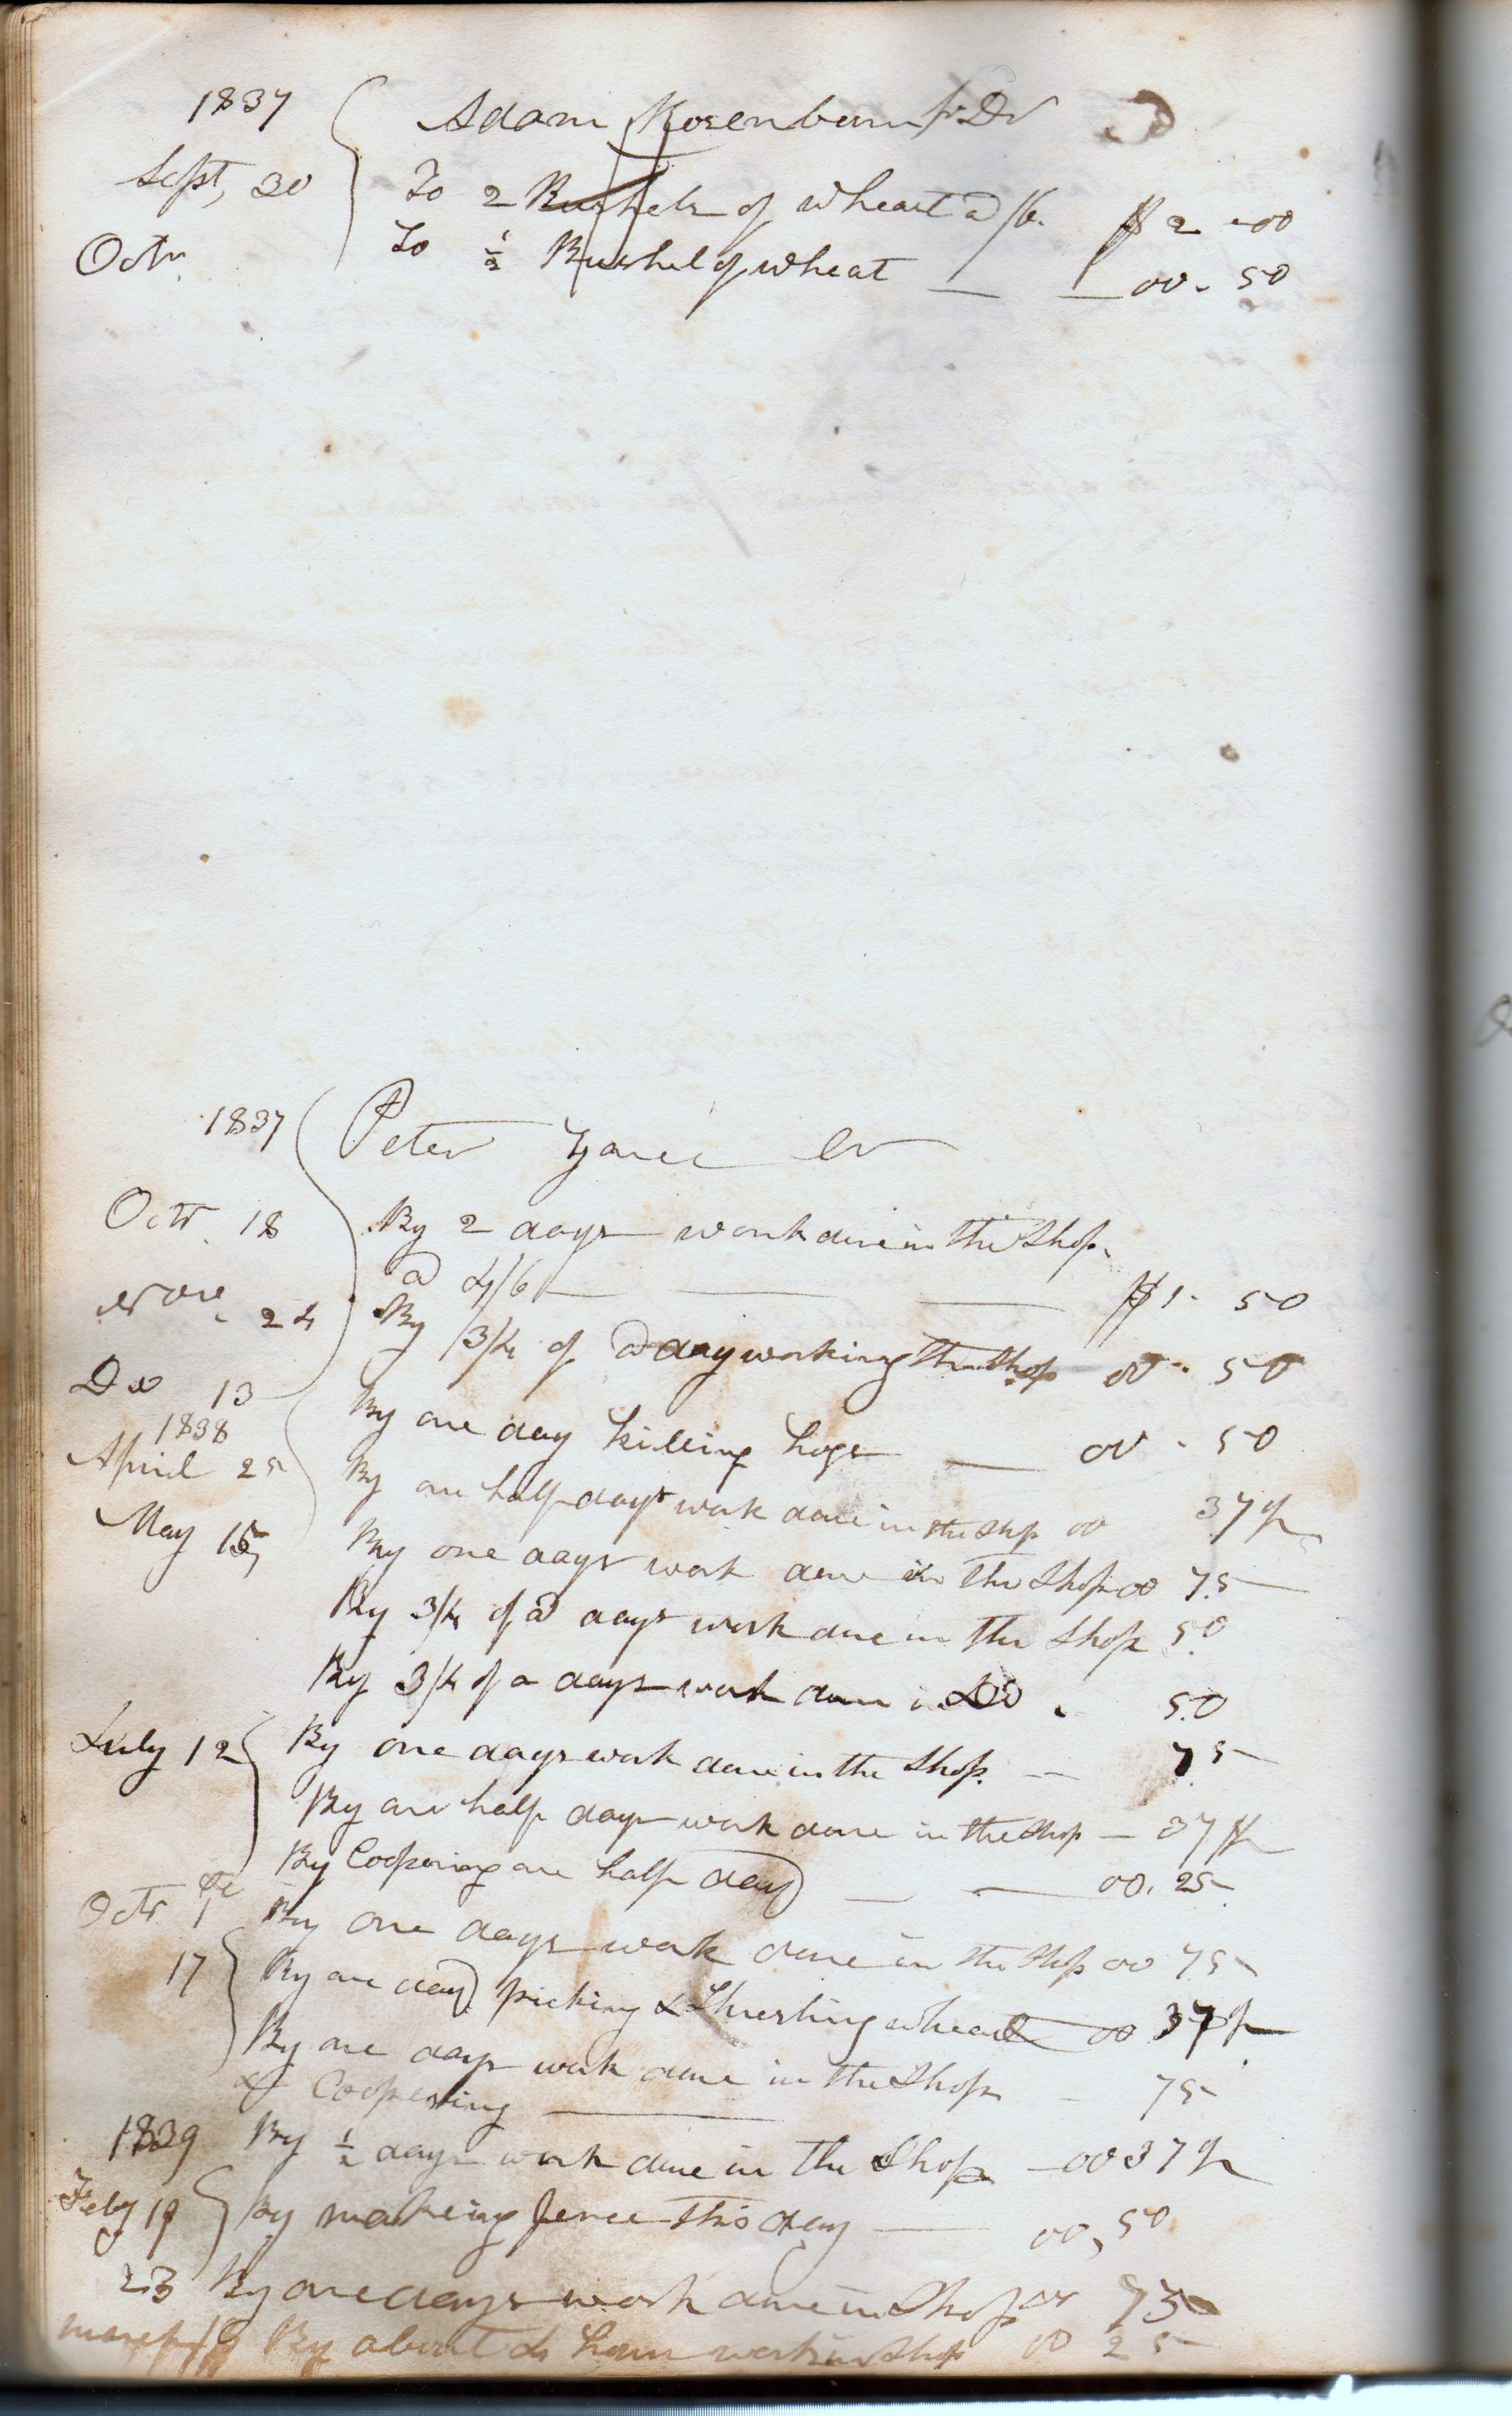 1837 Adam Rosenbaum Jr Dr
Sept, 20 To 2 Bushels of wheat @ /6. $2 - 00
Octr To ½ Bushel of wheat — — 00 - 50
1837 Peter Cr
Octr 18 By 2 days work done in the Shop
@ 4/6 — — — $1 - 50
Nove 24 By 3/4 of a day working the Shop 00 - 50
De 13 By one day killing hogs — 00 - 50
1838
April 25 By one half days work done in the Shop 00 37½
May 15 By one days work done in the Shop 00 75
By 3/4 of a days work done in the Shop 50
By 3/4 of a days work done in Do 50
July 12 By one days work done in the Shop — 75
By one half days work done in the Shop — 37½
By Coopering one half day — — 00. 25
Octr 1 By one days work done in the Shop 00 75
17 By one day picking & Threshing wheat 00 37½
By one days work done in the Shop — 75
& Coopering —
1839 By ½ days work done in the Shop — 00 37½
Feby 19 By making fence this day — 00, 50
23 By one days work done in Shop 00 75
march 19 By about 4 hours work in Shop 00 25